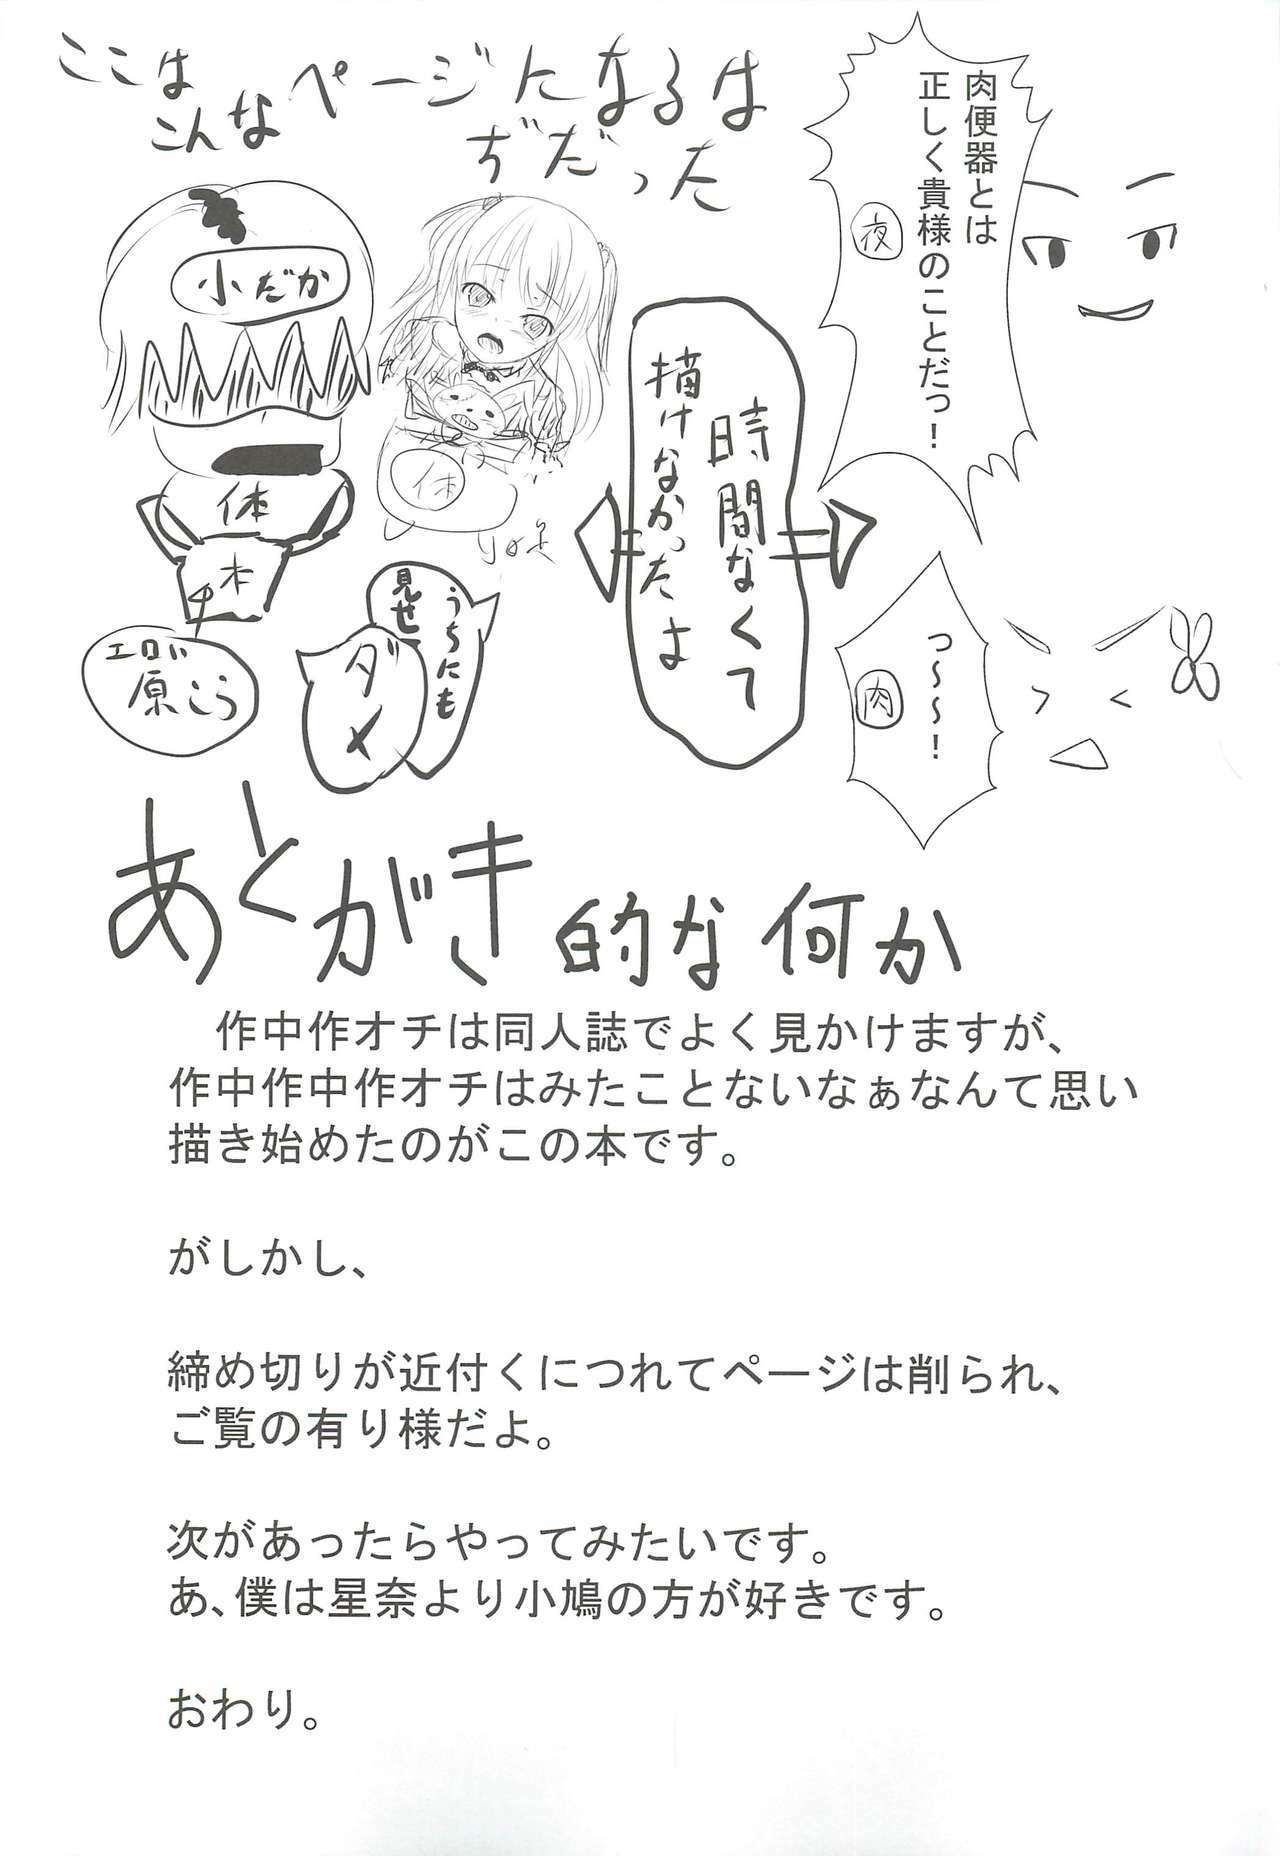 ここは
こんなページになるは
ぢだった
肉便器とは
正しく貴様のことだっ！
夜
小だか
時間なくて
描けなかったよ
体
体
本
エロい
原こう
うちにも
見せ
ダメ
っ～～～！
肉
あとがき的な何か
作中作オチは同人誌でよく見かけますが、
作中作中作オチはみたことないなぁなんて思い
描き始めたのがこの本です。
がしかし、
締め切りが近付くにつれてページは削られ、
ご覧の有り様だよ。
次があったらやってみたいです。
あ、僕は星奈より小鳩の方が好きです。
おわり。